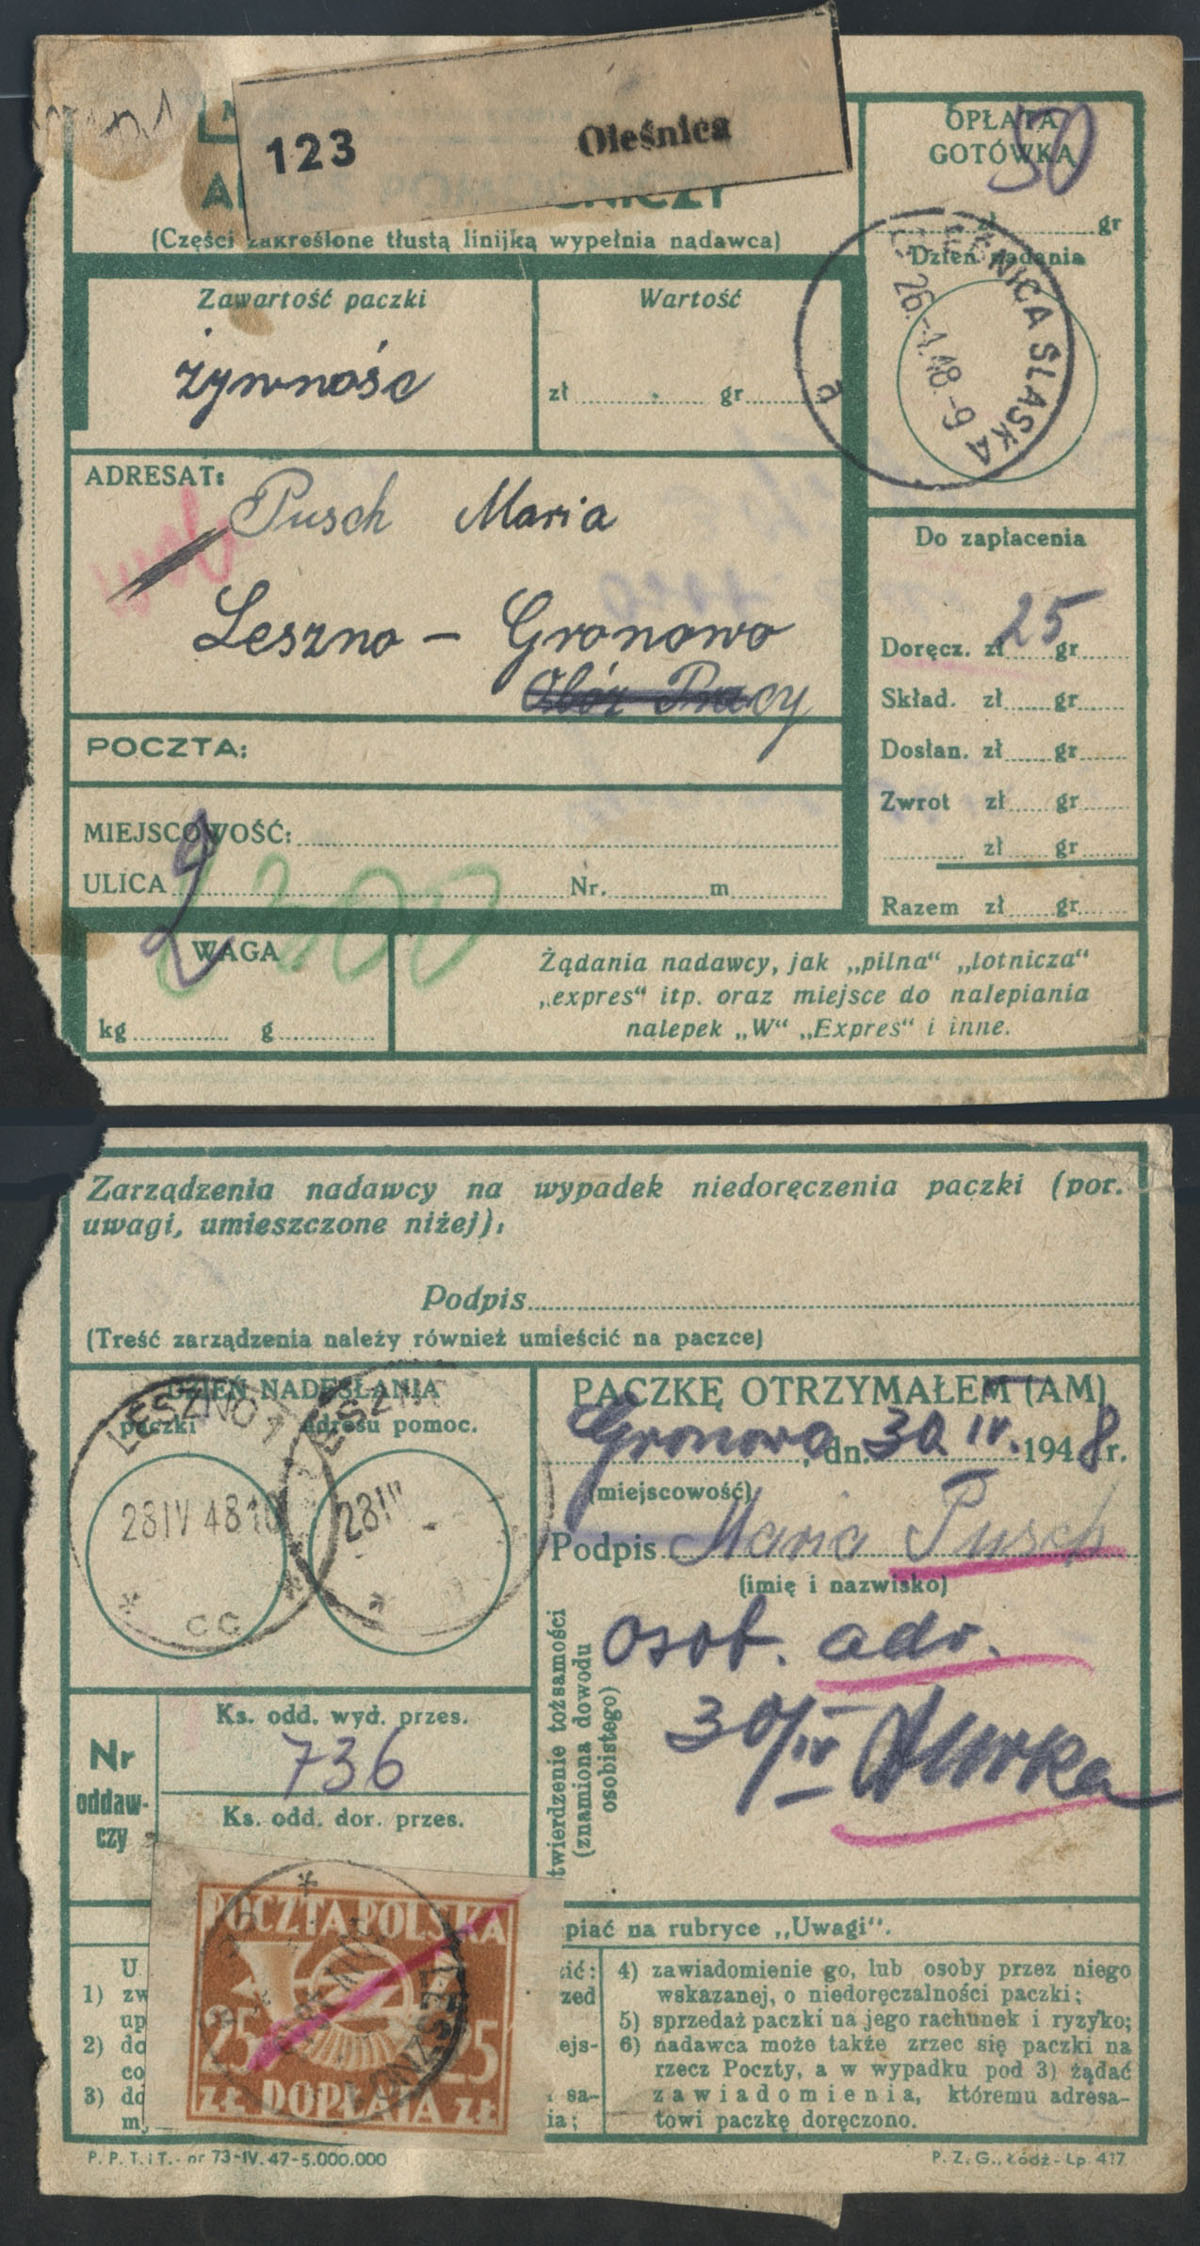 123 Oleśnica
(Części zakreślone tłustą linijką wypełnia nadawca)
OPŁATA
GOTÓWKĄ
50
zł gr
Dzień nadania
LEŚNICA ŚLĄSKA
26.-4.48.-9
a
Zawartość paczki
żywność
Wartość
zł gr
ADRESAT:
Pusch Maria
Leszno – Gronowo
Obóz Pracy
POCZTA:
MIEJSCOWOŚĆ:
ULICA Nr. m
Do zapłacenia
Doręcz. zł 25 gr
Skład. zł gr
Dosłan. zł gr
Zwrot zł gr
zł gr
Razem zł gr
WAGA
2
kg g
Żądania nadawcy, jak „pilna“ „lotnicza“
„expres“ itp. oraz miejsce do nalepiania
nalepek „W“ „Expres“ i inne.
Zarządzenia nadawcy na wypadek niedoręczenia paczki (por.
uwagi, umieszczone niżej):
Podpis
(Treść zarządzenia należy również umieścić na paczce)
DZIEŃ NADESŁANIA
paczki adresu pomoc.
LESZNO 1
28 IV 48 10
CC
28 IV
PACZKĘ OTRZYMAŁEM (AM)
Gronowo, dn. 30. IV. 1948 r.
(miejscowość)
Podpis Maria Pusch
(imię i nazwisko)
twierdzenie tożsamości
(znamiona dowodu
osobistego)
osob. adr.
30/IV
Nr
oddaw-
czy
Ks. odd. wyd. przes.
736
Ks. odd. dor. przes.
POCZTA POLSKA
25 25
ZŁ DOPŁATA ZŁ
LESZNO
piać na rubryce „Uwagi“.
U
1) zw
up
2) do
co
3) do
m,
cić:
zed
ejs-
sa-
ia;
4) zawiadomienie go, lub osoby przez niego
wskazanej, o niedoręczalności paczki;
5) sprzedaż paczki na jego rachunek i ryzyko;
6) nadawca może także zrzec się paczki na
rzecz Poczty, a w wypadku pod 3) żądać
zawiadomienia, któremu adresa-
towi paczkę doręczono.
P. P. T. i T. - nr 73-IV. 47-5.000.000
P. Z. G., Łódź - Lp. 417